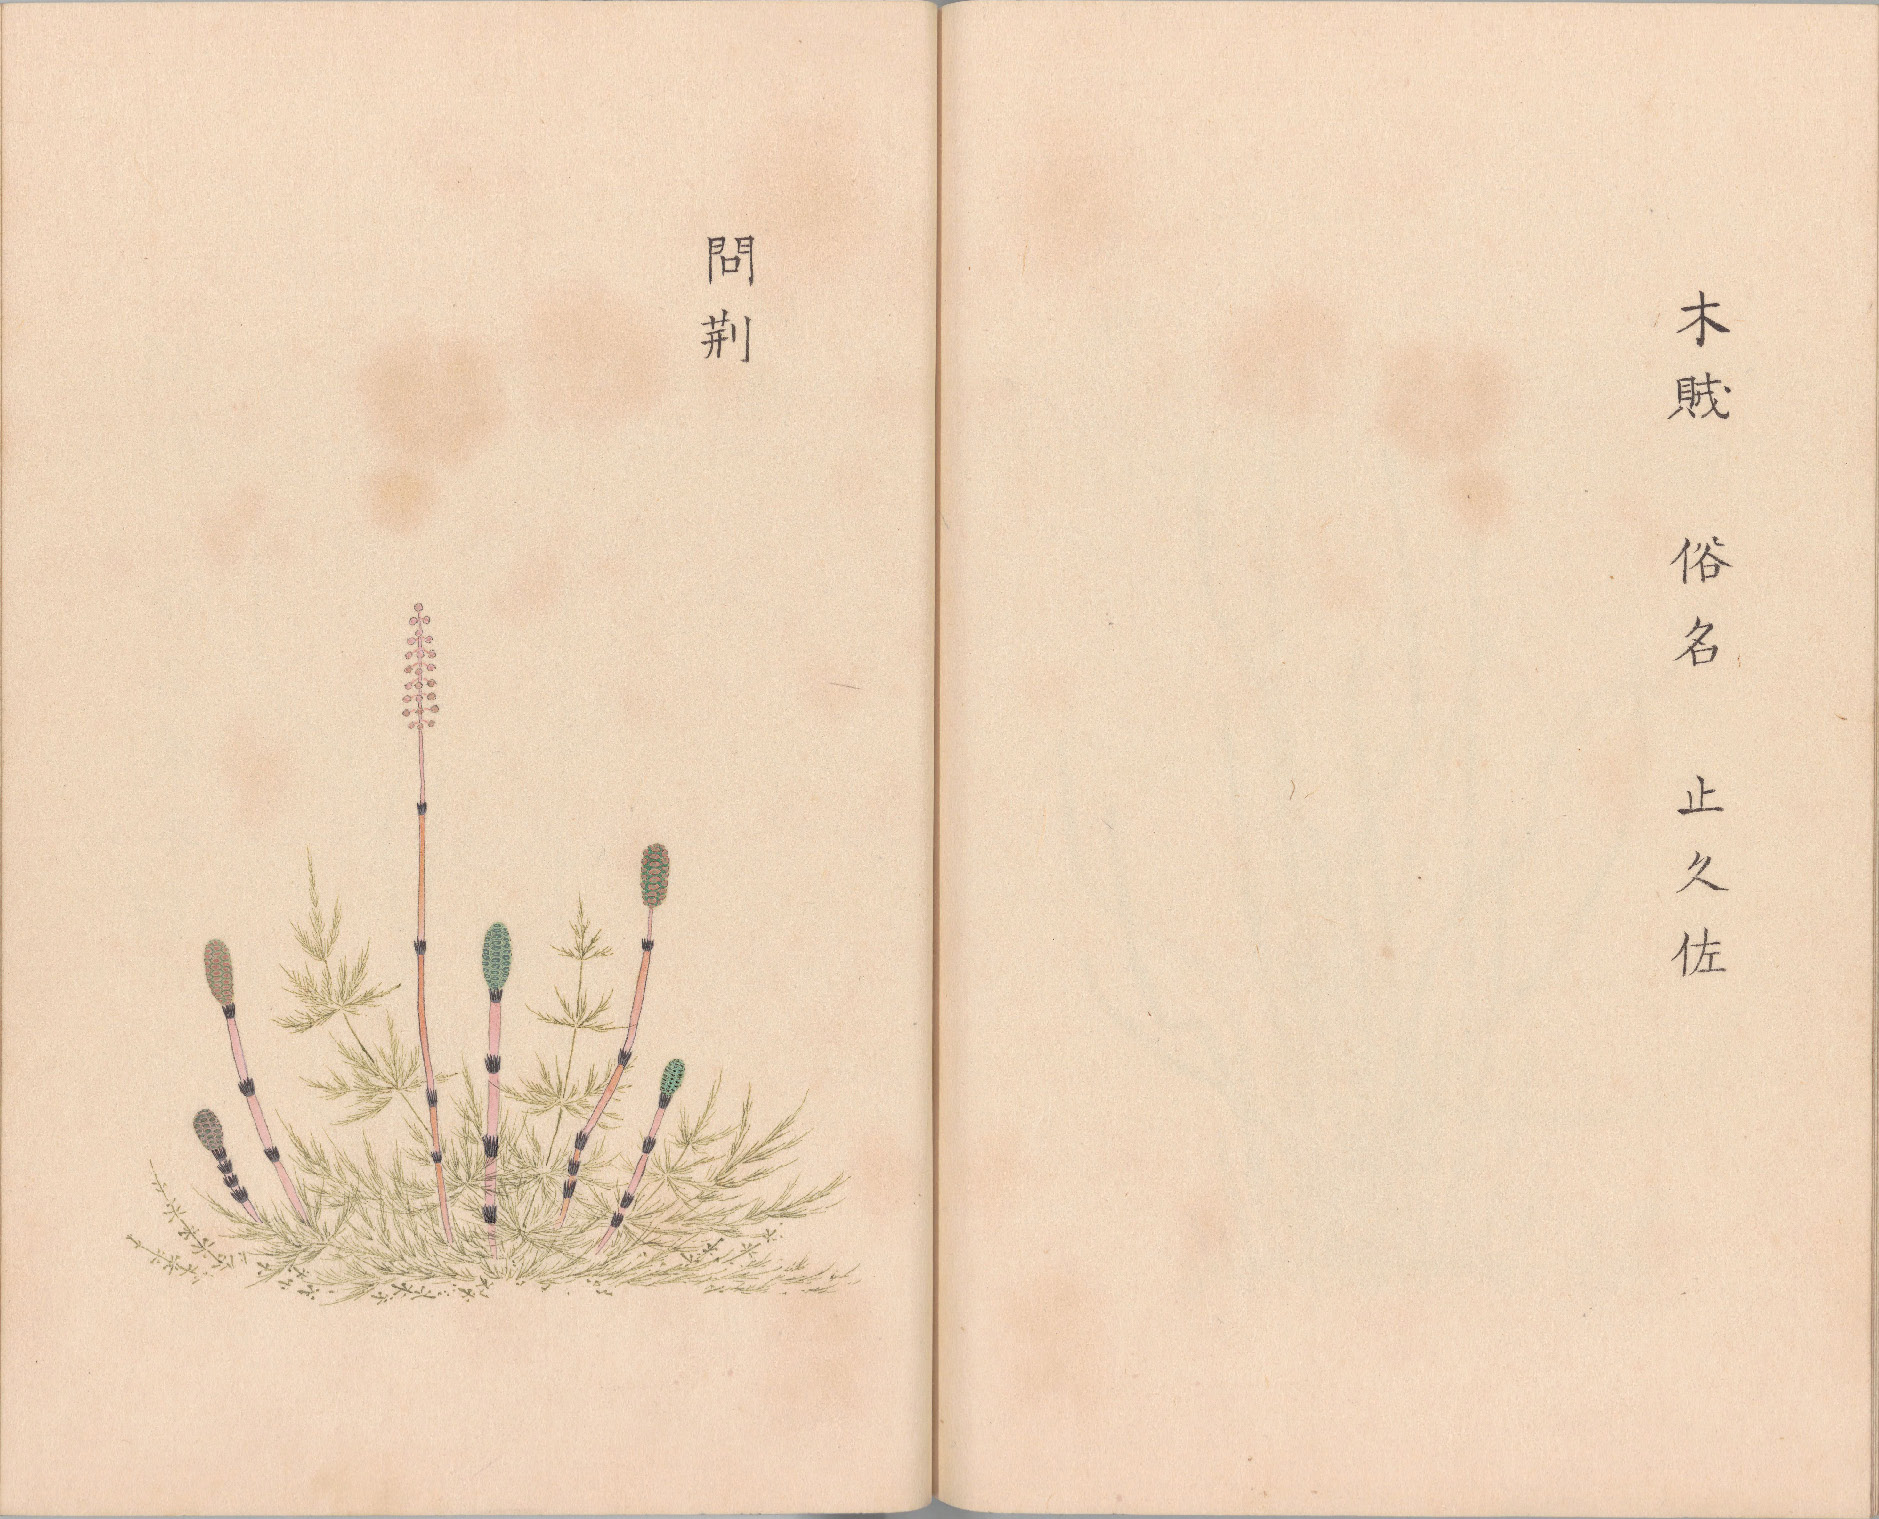 木賊 俗名 止久佐
問荊